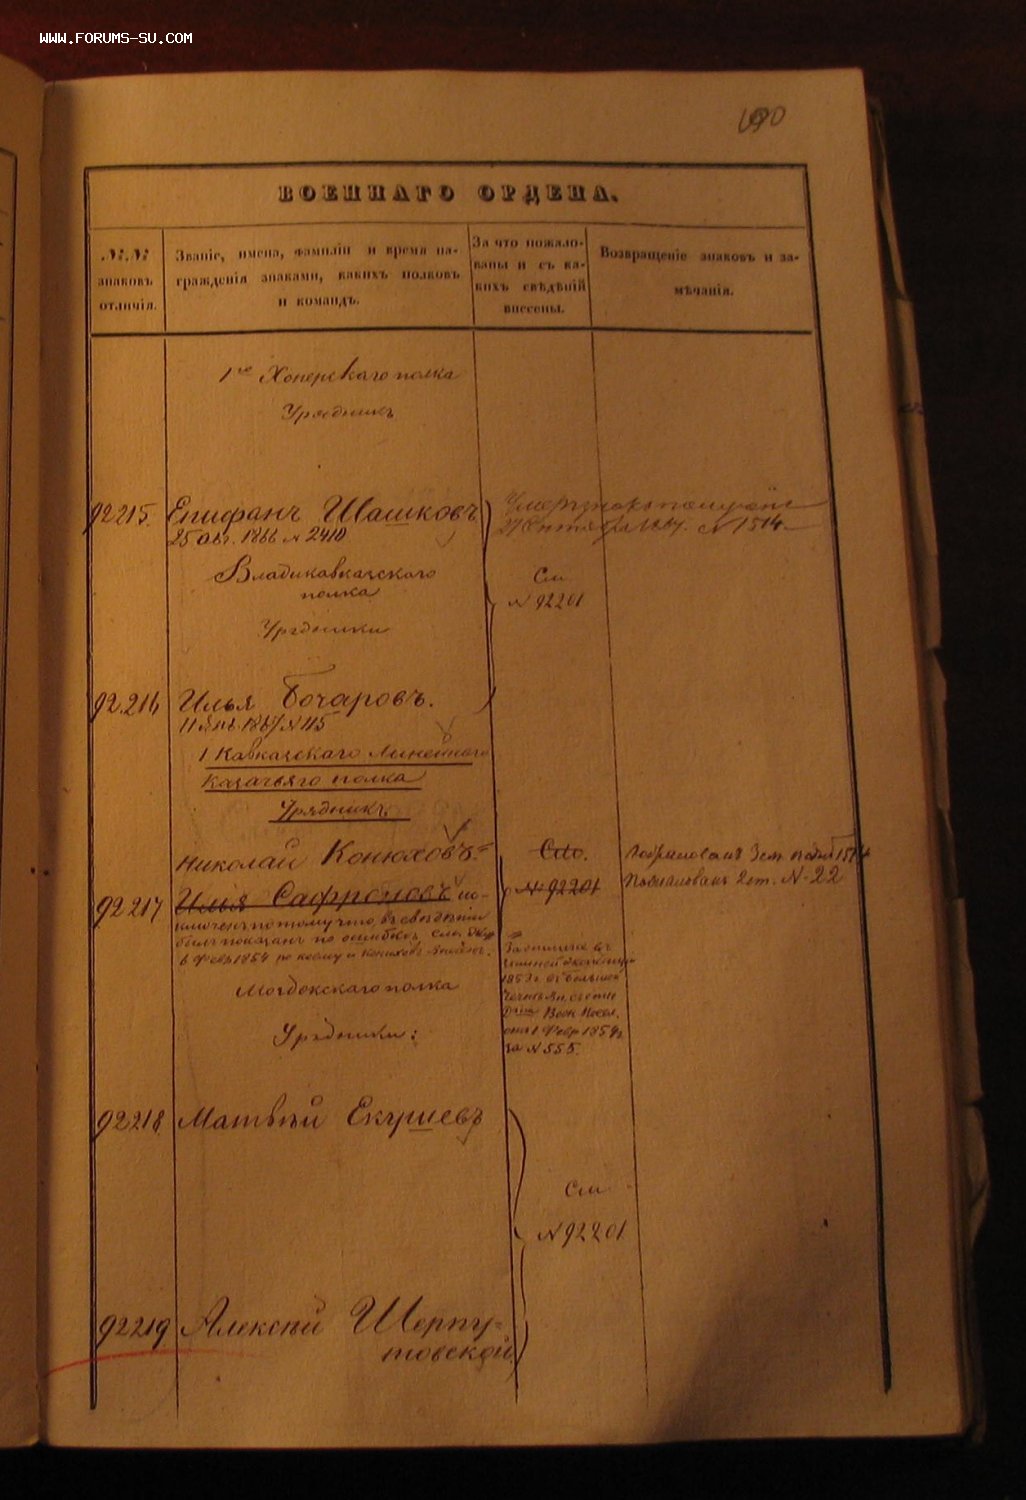 WWW.FORUMS-SU.COM
ВОЕННАГО ОРДЕНА.
№№ знаковъ отличія.
Званіе, имена, фамиліи и время на-
гражденія знаками, какихъ полковъ
и командъ.
За что пожало-
ваны и съ ка-
кихъ свѣдѣній
внесены.
Возвращеніе знаковъ и за-
мѣчанія.
1го Хоперскаго полка
Урядникъ
92215. Епифанъ Шашковъ
25 Авг. 1866 № 2410
27 1867. № 1514
Владикавказскаго
полка
См
№ 92201
Урядники
92.216 Илья Бочаровъ.
11 Янв. 1867 № 115
1 Кавказскаго Линейнаго
Казачьяго полка
Урядникъ
Николай Конюховъ
Сто.
3 ст.
92217 Илья Сафроновъ ис-
№ 92201
2 ст. № 22
ключенъ потому что въ сведѣніи
былъ показанъ по ошибкѣ, См.
6 Февр 1854 по коему и Конюховъ
1853 г.
Воен Посел.
1 Февр 1854 г.
за № 555.
Моздокскаго полка
Урядники:
92218 Матвѣй Екушевъ
См
№ 92201
92219 Алексѣй Шерпу-
товской